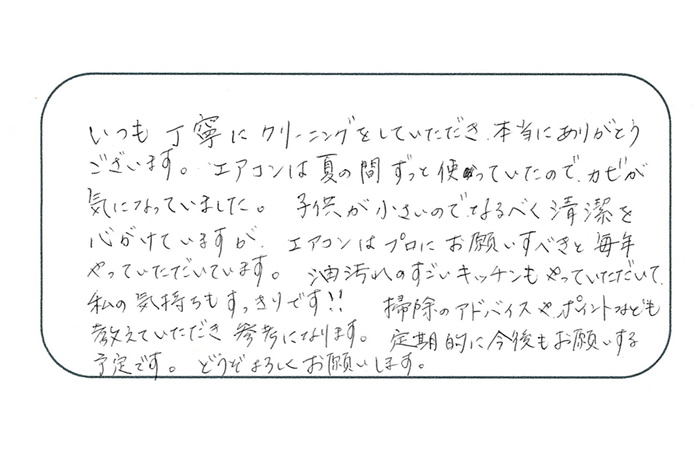 いつも丁寧にクリーニングをしていただき、本当にありがとう
ございます。エアコンは夏の間ずっと使っていたので、カビが
気になっていました。子供が小さいのでなるべく清潔を
心がけていますが、エアコンはプロにお願いすべきと毎年
やっていただいています。油汚れのすごいキッチンもやっていただいて、
私の気持ちもすっきりです!! 掃除のアドバイスや、ポイントなども
教えていただき参考になります。定期的に今後もお願いする
予定です。どうぞよろしくお願いします。